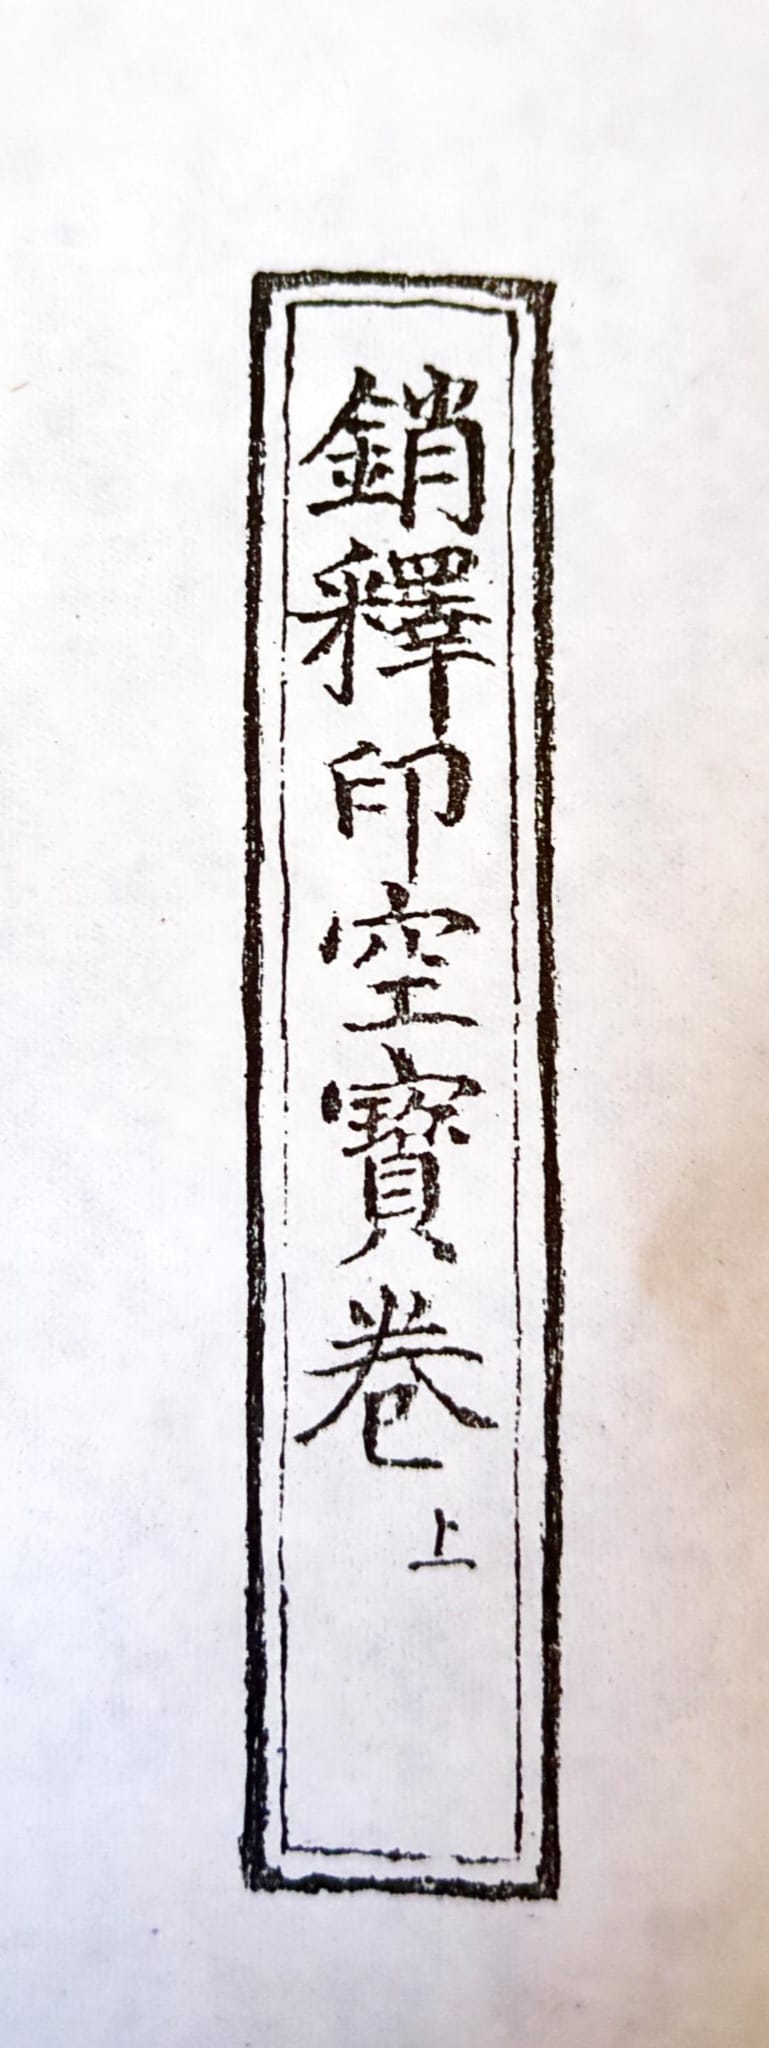 銷釋印空寶卷
上